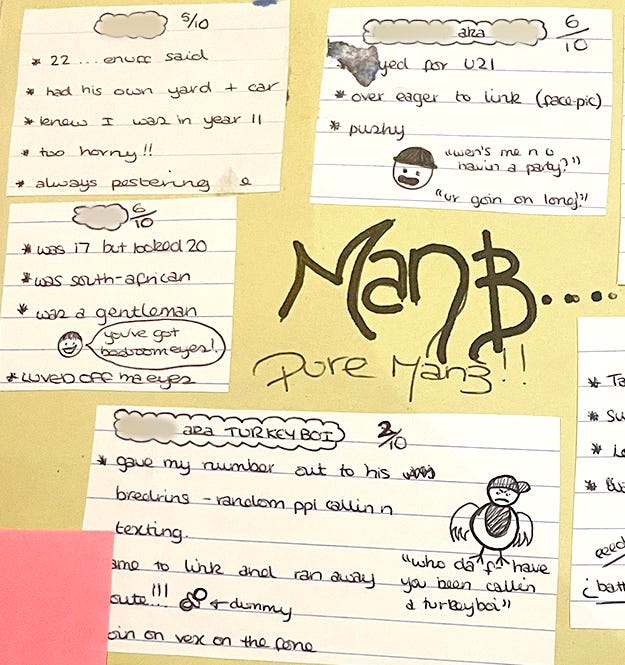 5/10
* 22 ... enuff said
* had his own yard + car
* knew I was in year 11
* too horny!!
* always pestering
aka
6/10
yed for U21
* over eager to link (face-pic)
* pushy
"wen's me n u
havin a party?"
"ur goin on long!"
6/10
* was 17 but looked 20
* was south-african
* was a gentleman
you've got
bedroom eyes!
* luved off ma eyes
ManB....
Pure Manz!!
aka TURKEYBOI
2/10
* gave my number out to his
bredrins - random ppl callin n
texting.
ame to link and ran away
oute!!! + dummy
oin on vex on the fone
"who da f* have
you been callin
a turkeyboi"
* Ta
* Su
* 
*